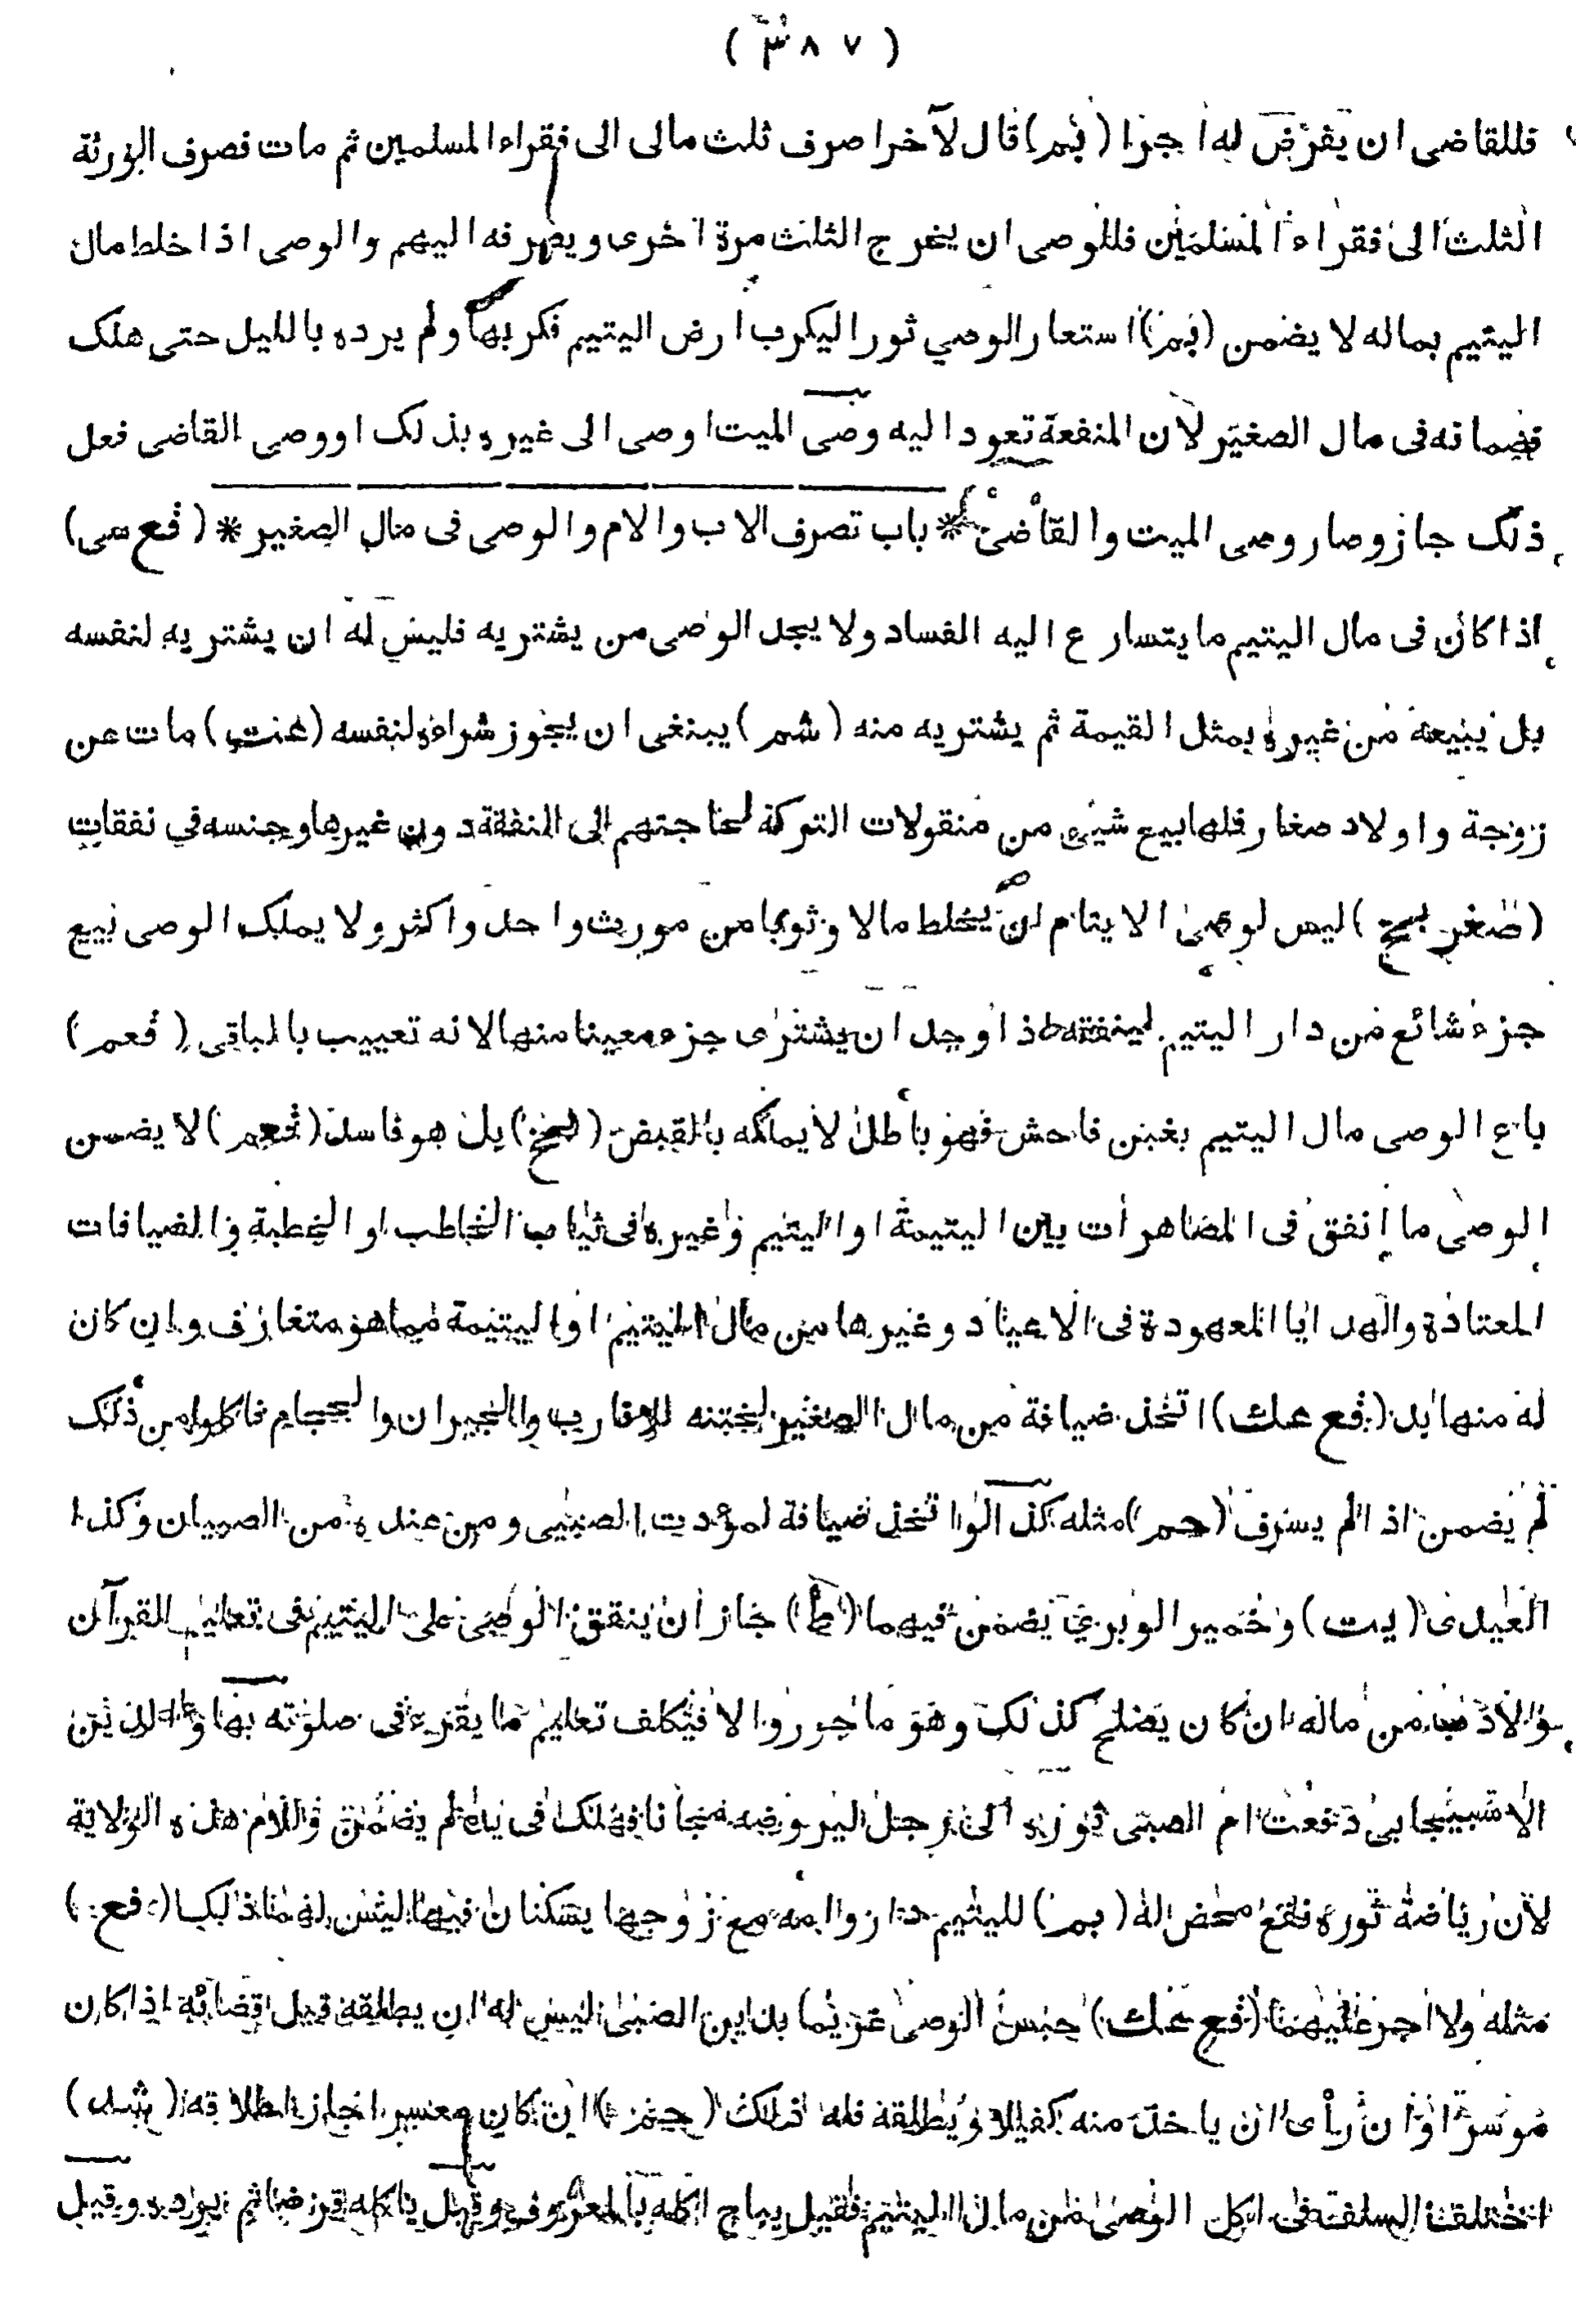 ( ٣٨٧ )
فللقاضى ان يفرض له اجرا (بم) قال لآخر اصرف ثلث مالى الى فقراء المسلمين ثم مات فصرف الورثة
الثلث الى فقراء المسلمين فللوصى ان يخرج الثلث مرة اخرى ويصرفه اليهم والوصى اذا خلط مال
اليتيم بماله لا يضمن (بم) استعار الوصي ثورا ليكرب ارض اليتيم فكربها ولم يرده بالليل حتى هلك
فضمانه فى مال الصغير لان المنفعة تعود اليه وصى الميت اوصى الى غيره بذلك او وصى القاضى فعل
ذلك جاز وصار وصى الميت والقاضى * باب تصرف الاب والام والوصى فى مال الصغير * (فع سى)
اذا كان فى مال اليتيم ما يتسارع اليه الفساد ولا يجد الوصى من يشتريه فليس له ان يشتريه لنفسه
بل يبيعه من غيره بمثل القيمة ثم يشتريه منه (شم) يبنغى ان يجوز شراءه لنفسه مات عن
زوجة واولاد صغار فلها بيع شيئ من منقولات التركة لحاجتهم الى النفقة دون غيرها وجنسه في نفقات
(صغر بخ) ليس لوصى الايتام ان يخلط مالا وثوبا من موريث واحد واكثر ولا يملك الوصى بيع
جزء شائع من دار اليتيم لينفقه اذا وجد ان يشترى جزء معينا منها لانه تعييب بالباقى (فعم)
باع الوصى مال اليتيم بغبن فاحش فهو باطل لا يملكه بالقبض (بخ) بل هو فاسد لا يضمن
الوصى ما انفق فى المصاهرات بين اليتيمة او اليتيم وغيره فى ثياب الخاطب او الخطبة والضيافات
المعتادة والهدايا المعهودة فى الاعياد وغيرها من مال اليتيم او اليتيمة فيما هو متعارف وان كان
له منها بد (فع عك) اتخذ ضيافة من مال الصغير لختنه للاقارب والجيران والحجام فاكلوا من ذلك
لم يضمن اذا لم يسرف (حم) مثله كذا لو اتخذ ضيافة لمؤدب الصبى ومن عنده من الصبيان وكذا
العيدى (يت) وخمير الوبري يضمن فيهما (ط) جاز ان ينفق الوصى على اليتيم فى تعليم القرآن
والادب من ماله ان كان يصلح كذلك وهو ماجور والا فيكلف تعليم ما يقرء فى صلوته بها الدين
الاسبيجابى دفعت ام الصبى ثوره الى رجل ليروضه مجانا فهلك فى يده لم يضمن وللام هذه الولاية
لان رياضة ثوره نفع محض له (بم) لليتيم دار وامه مع زوجها يسكنان فيها ليس لهما ذلك (فع)
مثله ولا اجر عليهما (فع عك) حبس الوصى غريما بدين الصبى ليس له ان يطلقه قبل قضائه اذا كان
موسرا وان رأى ان ياخذ منه كفيلا ويطلقه فله ذلك ان كان معسرا جاز اطلاقه
اختلف السلف فى اكل الوصى من مال اليتيم فقيل يباح اكله بالمعروف وقيل ياكله قرضا ثم يرده وقيل